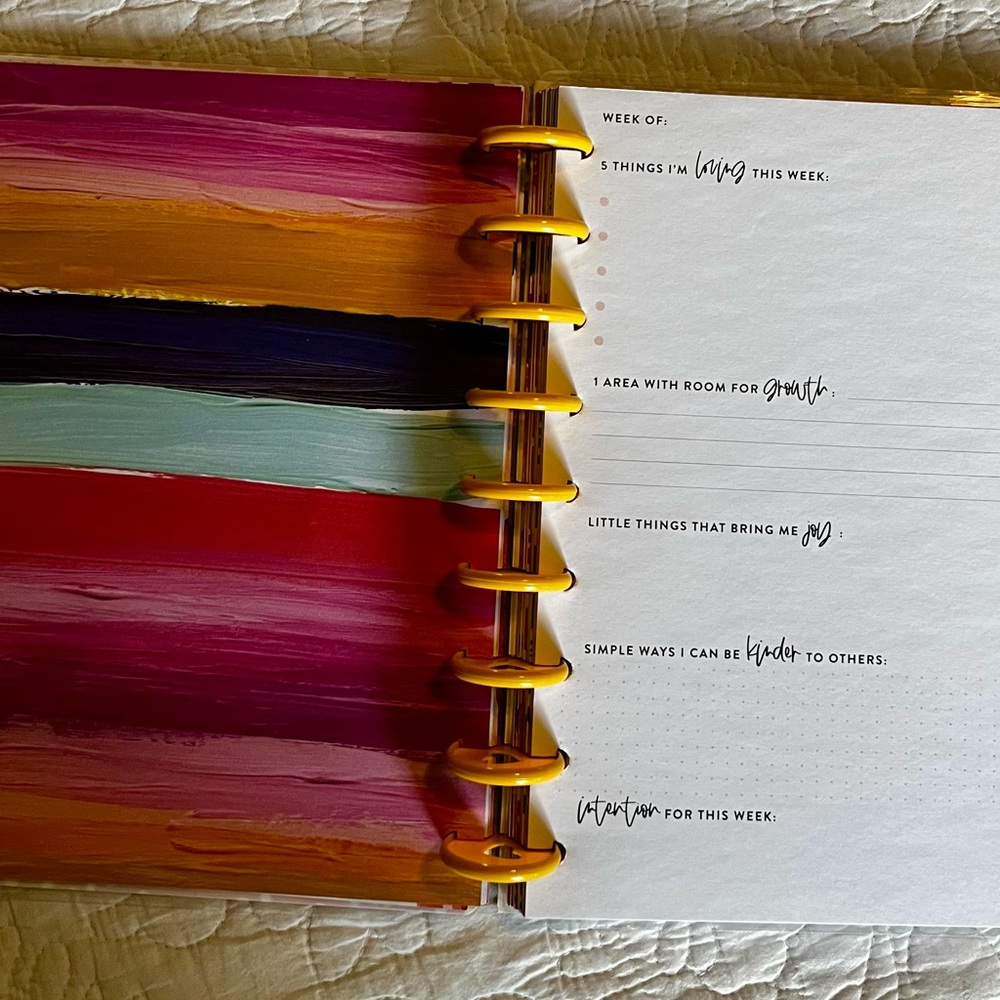 WEEK OF:
5 THINGS I'M loving THIS WEEK:
1 AREA WITH ROOM FOR growth:
LITTLE THINGS THAT BRING ME joy:
SIMPLE WAYS I CAN BE kinder TO OTHERS:
intention FOR THIS WEEK: